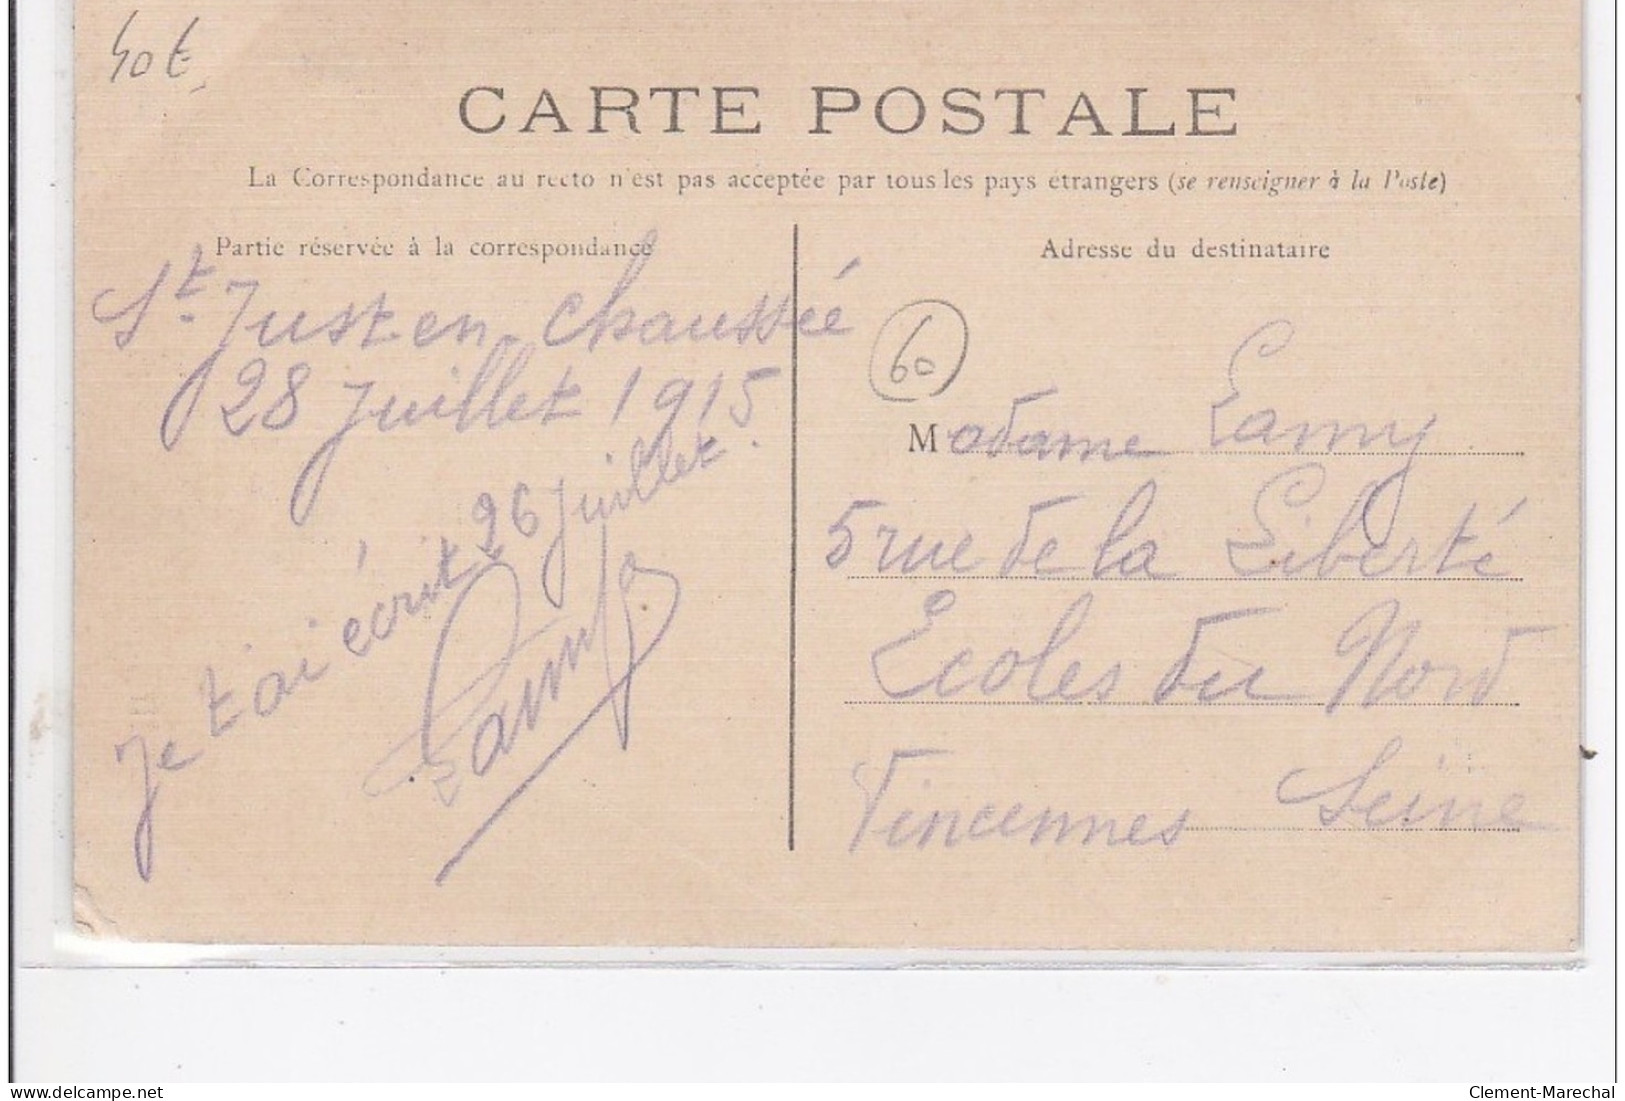 40€
CARTE POSTALE
La Correspondance au recto n'est pas acceptée par tous les pays étrangers (se renseigner à la Poste)
Partie réservée à la correspondance
St. Just en Chaussée
28 Juillet 1915
Je t'ai écrit 26 Juillet.
Lamy
Adresse du destinataire
60
Madame Lamy
5 rue de la Liberté
Ecoles du Nord
Vincennes Seine
delcampe.net
Clement-Marechal